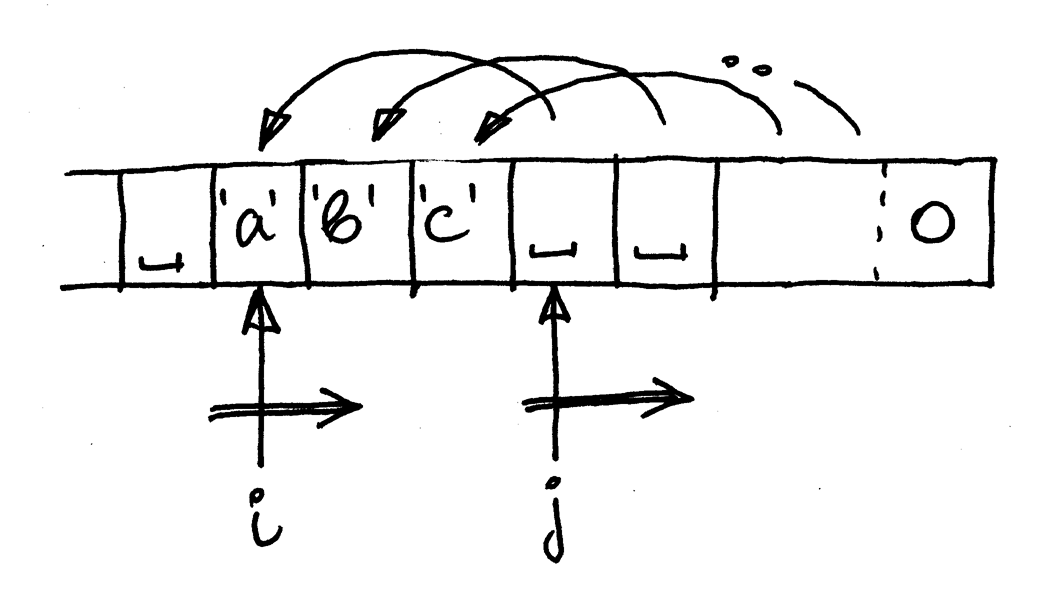 ␣ 'a' 'b' 'c' ␣ ␣ 0
i j